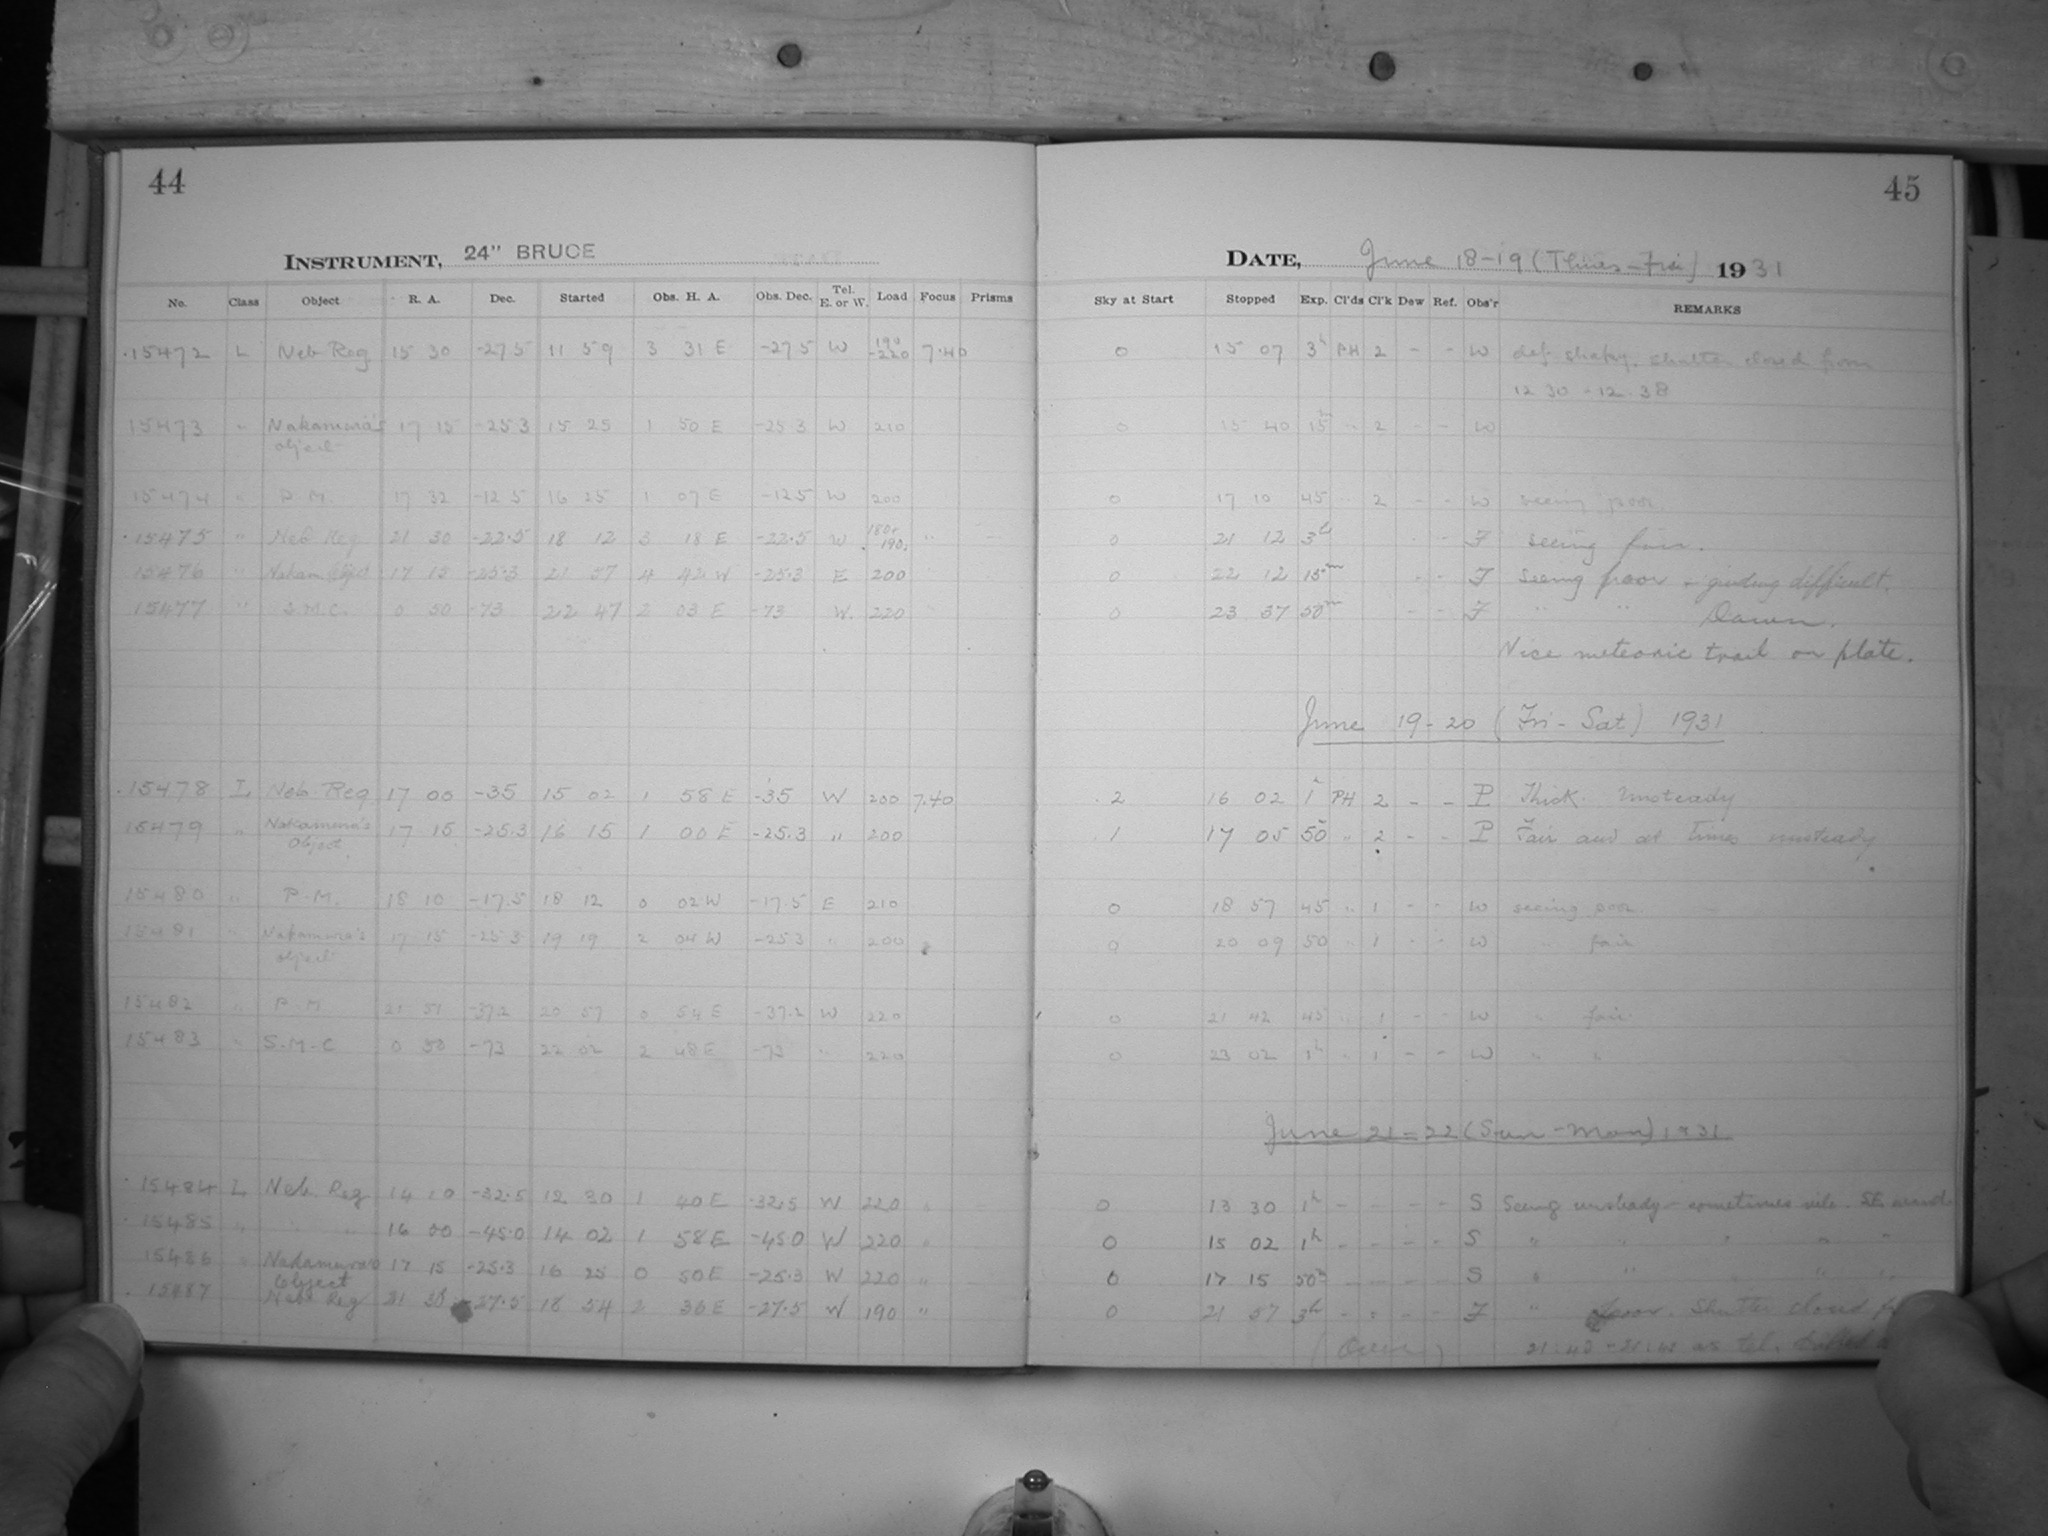 44
INSTRUMENT, 24" BRUCE
No. Class Object R. A. Dec. Started Obs. H. A. Obs. Dec. Tel. E. or W. Load Focus Prisms
15472 L Neb Reg 15 30 -27.5 11 59 3 31 E -27.5 W 190-220 7.40
15473 " Nakamura's 17 15 -25.3 15 25 1 50 E -25.3 W 210
object
15474 " P.M. 17 32 -12.5 16 25 1 07 E -12.5 W 200
15475 " Neb Reg 21 30 -22.5 18 12 3 18 E -22.5 W 180-190 "
15476 " Nakam object 17 15 -25.3 21 57 4 42 W -25.3 E 200
15477 " S.M.C. 0 50 -73 22 47 2 03 E -73 W. 220
15478 L Neb Reg 17 00 -35 15 02 1 58 E -35 W 200 7.40
15479 " Nakamura's 17 15 -25.3 16 15 1 00 E -25.3 " 200
Object
15480 " P.M. 18 10 -17.5 18 12 0 02 W -17.5 E 210
15481 " Nakamura's 17 15 -25.3 19 19 2 04 W -25.3 " 200
object
15482 " P.M 21 51 -37.2 20 57 0 54 E -37.2 W 220
15483 " S.M.C 0 50 -73 22 02 2 48 E -73 " 220
15484 L Neb. Reg 14 10 -32.5 12 30 1 40 E -32.5 W 220 "
15485 " " " 16 00 -45.0 14 02 1 58 E -45.0 W 220 "
15486 " Nakamura's 17 15 -25.3 16 25 0 50 E -25.3 W 220 "
Object
15487 Neb Reg 21 30 -27.5 18 54 2 36 E -27.5 W 190 "
45
DATE, June 18-19 (Thurs-Fri) 1931
Sky at Start Stopped Exp. Cl'ds Cl'k Dew Ref. Obs'r REMARKS
0 15 07 3h PH 2 - - W def. shaky. shutter closed from
12 30 - 12.38
0 15 40 15m " 2 - - W
0 17 10 45 " 2 - - W seeing poor
0 21 12 3h - - F seeing fair.
0 22 12 15m - - F seeing poor & guiding difficult.
0 23 37 50m - - F " " Dawn.
Nice meteoric trail on plate.
June 19-20 (Fri-Sat) 1931
2 16 02 1h PH 2 - - P Thick. Unsteady
1 17 05 50 " 2 - - P Fair and at times unsteady
0 18 57 45 " 1 - - W seeing poor.
0 20 09 50 " 1 - - W " fair
0 21 42 45 " 1 - - W " fair
0 23 02 1h " 1 - - W " "
June 21-22 (Sun-Mon) 1931
0 13 30 1h - - - - S Seeing unsteady - sometimes vile. SE wind.
0 15 02 1h - - - - S " " " " "
0 17 15 50m - - - - S " " " "
0 21 57 3h - - - - F " poor. Shutter closed
(Over) 21:42 - 21:42 as tel.